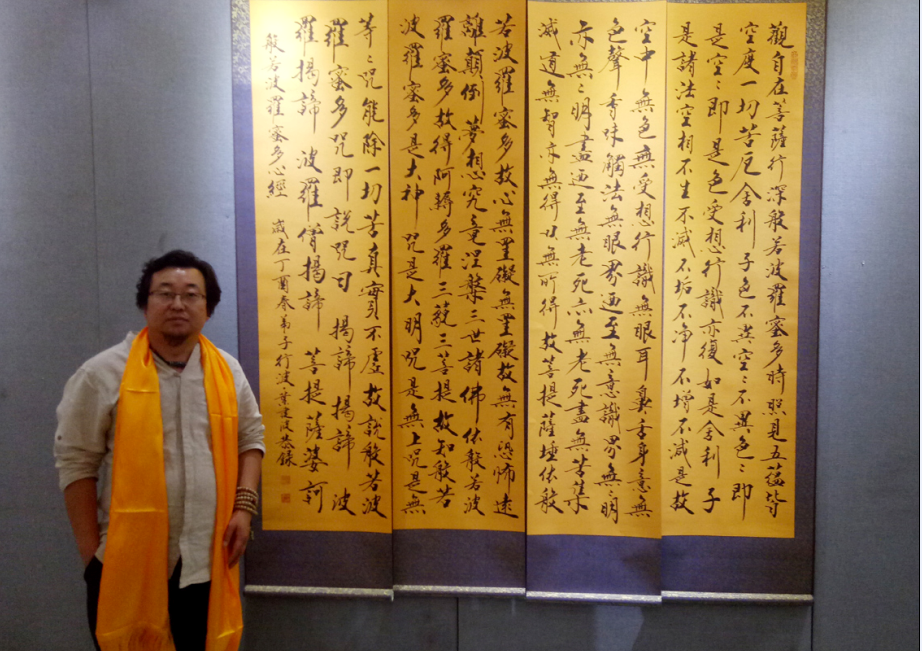 觀自在菩薩行深般若波羅蜜多時照見五蘊皆
空度一切苦厄舍利子色不异空〻不異色〻即
是空〻即是色受想行識亦復如是舍利子
是諸法空相不生不滅不垢不净不增不減是故
空中無色無受想行識無眼耳鼻舌身意無
色聲香味觸法無眼界迺至無意識界無〻明
亦無〻明盡迺至無老死亦無老死盡無苦集
滅道無智亦無得以無所得故菩提薩埵依般
若波羅蜜多故心無罣礙無罣礙故無有恐怖遠
離顛倒夢想究竟涅槃三世諸佛依般若波
羅蜜多故得阿耨多羅三藐三菩提故知般若
波羅蜜多是大神咒是大明咒是無上咒是無
等〻咒能除一切苦真實不虛故說般若波
羅蜜多咒即說咒曰揭諦揭諦波
羅揭諦波羅僧揭諦菩提薩婆訶
般若波羅蜜多心經 歲在丁酉春弟子行波葉建民恭錄